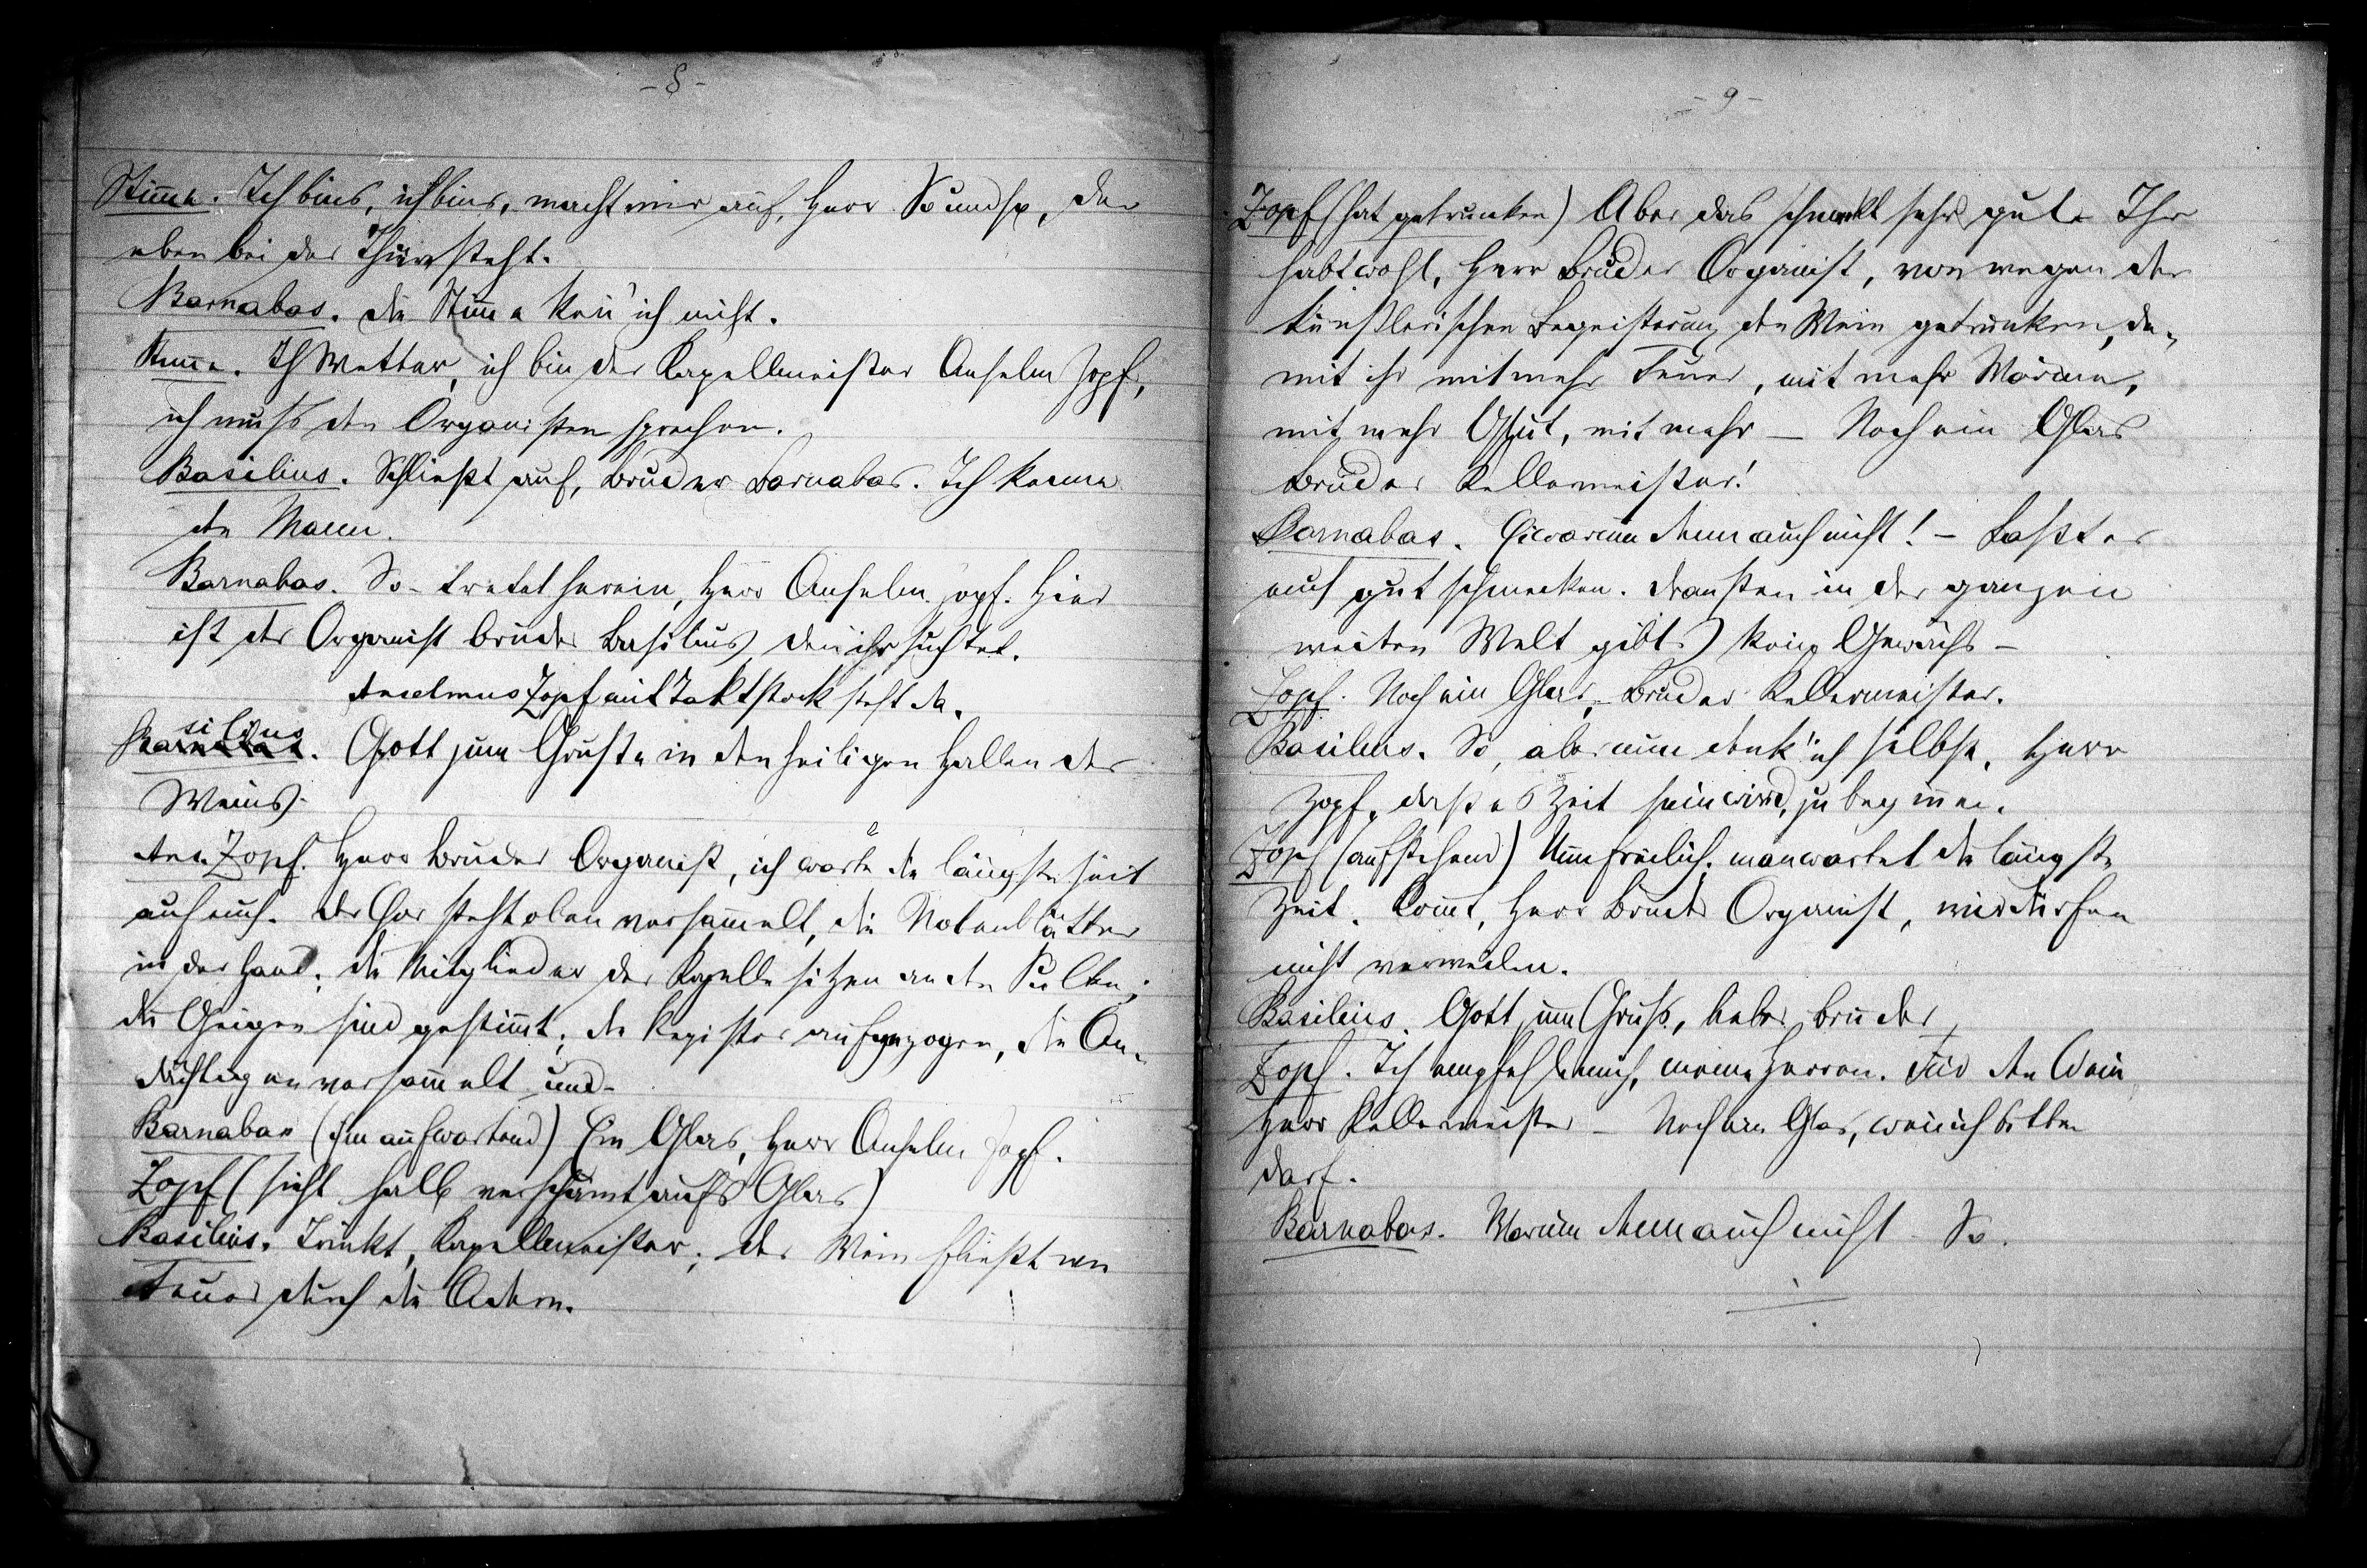 - 8 -
Stim̅e. Ich bins, ich bins, macht mir auf, Herr Soundso, der
eben bei der Thüre steht.
Barnabas. Die Stim̅e ken̅' ich nicht.
Stim̅e. Ich Wetter, ich bin der Kapellmeister Anselm Zopf,
ich muß den Organisten sprechen.
Basilius. Schließt auf, Bruder Barnabas. Ich kenne
den Mann.
Barnabas. So - tretet herein, Herr Anselm Zopf. Hier
ist der Organist Bruder Basilius den ihr suchtet.
Anselmus Zopf mit Taktstock steht da.
Basilius. Gott zum Gruße in den heiligen Hallen des
Weins.
Ans. Zopf. Herr Bruder Organist, ich warte die längste Zeit
auf euch. Der Chor steht oben versam̅elt, die Notenblätter
in der Hand; die Mitglieder der Kapelle sitzen an den Pulten;
die Geigen sind gestim̅t, die Register aufgezogen, die An-
dächtigen versam̅elt und -
Barnabas (ihm aufwartend) Ein Glas, Herr Anselm Zopf.
Zopf (sieht halb verschämt aufs Glas)
Basilius. Trinkt, Kapellmeister; der Wein fließt wie
Feuer durch die Adern.
- 9 -
Zopf (hat getrunken) Aber das schmeckt sehr gut. Ihr
habt wohl, Herr Bruder Organist, von wegen der
künstlerischen Begeisterung den Wein getrunken, da-
mit ihr mit mehr Feuer, mit mehr Wärme,
mit mehr Glut, mit mehr — Noch ein Glas
Bruder Kellermeister!
Barnabas. Ei warum denn auch nicht! - Laßt es
euch gut schmecken. Draußen in der ganzen
weiten Welt gibts kein Gewächs -
Zopf. Noch ein Glas, Bruder Kellermeister.
Basilius. So, aber nun denk' ich selbst, Herr
Zopf, daß es Zeit sein wird, zu begin̅en.
Zopf (aufstehend) Nun freilich, man wartet die längste
Zeit. Kom̅t, Herr Bruder Organist, wir dürfen
nicht verweilen.
Basilius. Gott zum Gruß, lieber Bruder
Zopf. Ich empfehle mich, meine Herren. Für den Wein
Herr Kellermeister - Noch ein Glas, wen̅ ich bitten
darf.
Barnabas. Warum denn auch nicht - So.